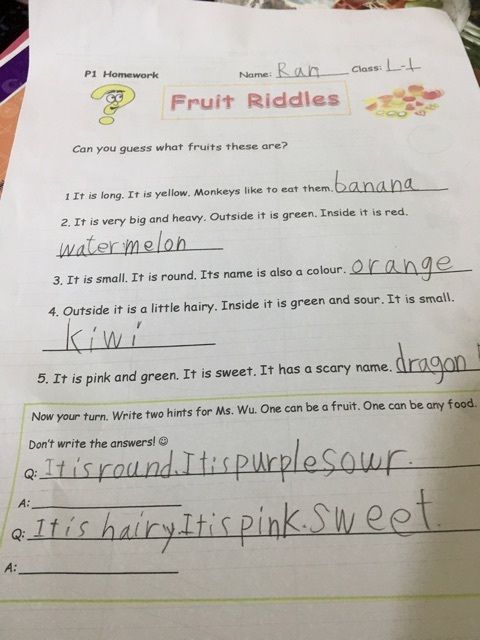 P1 Homework Name: Ran Class: 1-1
Fruit Riddles
Can you guess what fruits these are?
1 It is long. It is yellow. Monkeys like to eat them. banana
2. It is very big and heavy. Outside it is green. Inside it is red.
watermelon
3. It is small. It is round. Its name is also a colour. orange
4. Outside it is a little hairy. Inside it is green and sour. It is small.
kiwi
5. It is pink and green. It is sweet. It has a scary name. dragon
Now your turn. Write two hints for Ms. Wu. One can be a fruit. One can be any food.
Don't write the answers! ☺
Q: It is round. It is purple sour.
A:
Q: It is hairy. It is pink. sweet.
A: